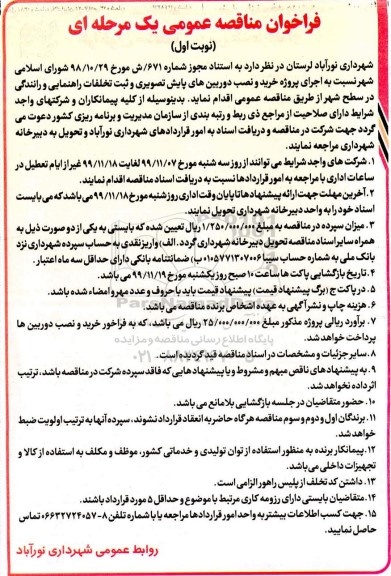 فراخوان مناقصه عمومی یک مرحله ای
(نوبت اول)
شهرداری نورآباد لرستان در نظر دارد به استناد مجوز شماره ۶۷۱/ش مورخ ۹۸/۱۰/۲۹ شورای اسلامی
شهر نسبت به اجرای پروژه خرید و نصب دوربین های پایش تصویری و ثبت تخلفات راهنمایی و رانندگی
در سطح شهر از طریق مناقصه عمومی اقدام نماید. بدینوسیله از کلیه پیمانکاران و شرکتهای واجد
شرایط دارای صلاحیت از مراجع ذی ربط و رتبه بندی از سازمان مدیریت و برنامه ریزی کشور دعوت می
گردد جهت شرکت در مناقصه و دریافت اسناد به امور قراردادهای شهرداری نورآباد و تحویل به دبیرخانه
شهرداری مراجعه نمایند.
۱. شرکت های واجد شرایط می توانند از روز سه شنبه مورخ ۹۹/۱۱/۰۷ لغایت ۹۹/۱۱/۱۸ غیر از ایام تعطیل در
ساعات اداری با مراجعه به امور قراردادها نسبت به دریافت اسناد مناقصه اقدام نمایند.
۲. آخرین مهلت جهت ارائه پیشنهادها تا پایان وقت اداری روز شنبه مورخ ۹۹/۱۱/۱۸ می باشد که می بایست
اسناد خود را به واحد دبیرخانه شهرداری تحویل نمایند.
۳. میزان سپرده در مناقصه به مبلغ ۱/۲۵۰/۰۰۰/۰۰۰ ریال تعیین شده که بایستی به یکی از دو صورت ذیل به
همراه سایر اسناد مناقصه تحویل دبیرخانه شهرداری گردد. الف) واریز نقدی به حساب سپرده شهرداری نزد
بانک ملی به شماره حساب سیبا ۰۱۰۵۷۷۱۳۰۷۰۰۶ ب) ضمانتنامه بانکی دارای حداقل سه ماه اعتبار.
۴. تاریخ بازگشایی پاکت ها ساعت ۱۰ صبح روز یکشنبه مورخ ۹۹/۱۱/۱۹ می باشد.
۵. در پاکت ج (برگ پیشنهاد قیمت) پیشنهاد قیمت باید با حروف و عدد مهر و امضاء شده باشد.
۶. هزینه چاپ و نشر آگهی به عهده اشخاص برنده مناقصه می باشد.
۷. برآورد ریالی پروژه مذکور مبلغ ۲۵/۰۰۰/۰۰۰/۰۰۰ ریال می باشد، که به فراخور خرید و نصب دوربین ها
پرداخت خواهد شد.
۸. سایر جزئیات و مشخصات در اسناد مناقصه قید گردیده است.
۹. به پیشنهاد های ناقص مبهم و مشروط و یا پیشنهادهایی که فاقد سپرده شرکت در مناقصه باشد، ترتیب
اثر داده نخواهد شد.
۱۰. حضور متقاضیان در جلسه بازگشایی بلامانع می باشد.
۱۱. برندگان اول و دوم و سوم مناقصه هر گاه حاضر به انعقاد قرارداد نشوند، سپرده آنها به ترتیب اولویت ضبط
خواهد شد.
۱۲. پیمانکار برنده به منظور استفاده از توان تولیدی و خدماتی کشور، موظف و مکلف به استفاده از کالا و
تجهیزات داخلی می باشد.
۱۳. داشتن کد تخلف از پلیس راهور الزامی است.
۱۴. متقاضیان بایستی دارای رزومه کاری مرتبط با موضوع و حداقل ۵ مورد قرارداد باشند.
۱۵. جهت کسب اطلاعات بیشتر به واحد امور قراردادها مراجعه یا با شماره تلفن ۸-۰۶۶۳۲۷۲۴۰۵۷ تماس
حاصل نمایید.
روابط عمومی شهرداری نورآباد